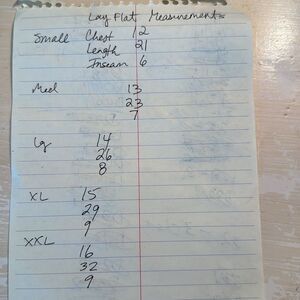 Lay Flat Measurements
Small Chest 12
Length 21
Inseam 6
Med 13
23
7
Lg 14
26
8
XL 15
29
9
XXL
16
32
9